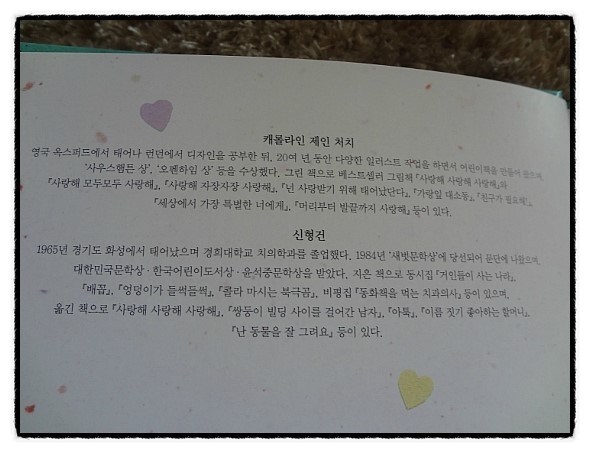 캐롤라인 제인 처치
영국 옥스퍼드에서 태어나 런던에서 디자인을 공부한 뒤, 20여 년 동안 다양한 일러스트 작업을 하면서 어린이책을 만들어 왔으며,
‘사우스햄튼 상’, ‘오펜하임 상’ 등을 수상했다. 그린 책으로 베스트셀러 그림책 『사랑해 사랑해 사랑해』와
『사랑해 모두모두 사랑해』, 『사랑해 자장자장 사랑해』, 『넌 사랑받기 위해 태어났단다』, 『가랑잎 대소동』, 『친구가 필요해』,
『세상에서 가장 특별한 너에게』, 『머리부터 발끝까지 사랑해』 등이 있다.
신형건
1965년 경기도 화성에서 태어났으며 경희대학교 치의학과를 졸업했다. 1984년 ‘새벗문학상’에 당선되어 문단에 나왔으며,
대한민국문학상·한국어린이도서상·윤석중문학상을 받았다. 지은 책으로 동시집 『거인들이 사는 나라』,
『배꼽』, 『엉덩이가 들썩들썩』, 『콜라 마시는 북극곰』, 비평집 『동화책을 먹는 치과의사』 등이 있으며,
옮긴 책으로 『사랑해 사랑해 사랑해』, 『쌍둥이 빌딩 사이를 걸어간 남자』, 『아툭』, 『이름 짓기 좋아하는 할머니』,
『난 동물을 잘 그려요』 등이 있다.